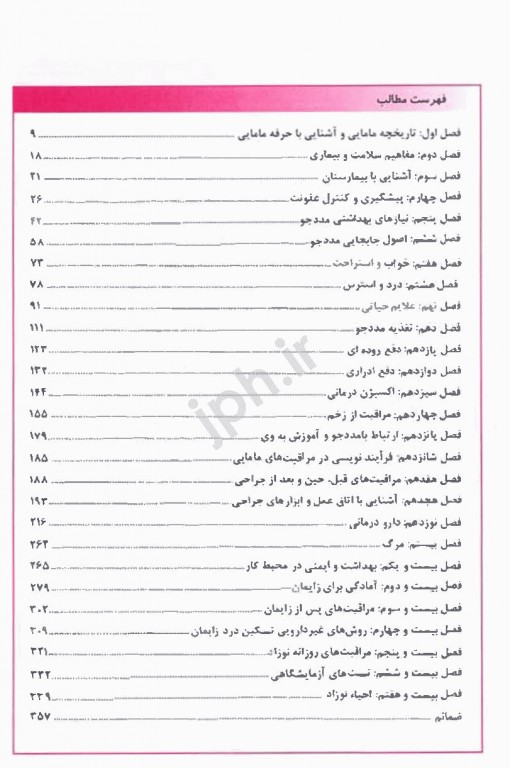 فهرست مطالب
فصل اول: تاریخچه مامایی و آشنایی با حرفه مامایی ۹
فصل دوم: مفاهیم سلامت و بیماری ۱۸
فصل سوم: آشنایی با بیمارستان ۲۱
فصل چهارم: پیشگیری و کنترل عفونت ۲۶
فصل پنجم: نیازهای بهداشتی مددجو ۴۲
فصل ششم: اصول جابجایی مددجو ۵۸
فصل هفتم: خواب و استراحت ۷۳
فصل هشتم: درد و استرس ۷۸
فصل نهم: علایم حیاتی ۹۱
فصل دهم: تغذیه مددجو ۱۱۱
فصل یازدهم: دفع روده ای ۱۲۳
فصل دوازدهم: دفع ادراری ۱۳۲
فصل سیزدهم: اکسیژن درمانی ۱۴۴
فصل چهاردهم: مراقبت از زخم ۱۵۵
فصل پانزدهم: ارتباط بامددجو و آموزش به وی ۱۷۹
فصل شانزدهم: فرآیند نویسی در مراقبت‌های مامایی ۱۸۵
فصل هفدهم: مراقبت‌های قبل، حین و بعد از جراحی ۱۸۸
فصل هجدهم: آشنایی با اتاق عمل و ابزارهای جراحی ۱۹۳
فصل نوزدهم: دارو درمانی ۲۱۶
فصل بیستم: مرگ ۲۶۴
فصل بیست و یکم: بهداشت و ایمنی در محیط کار ۲۶۵
فصل بیست و دوم: آمادگی برای زایمان ۲۷۹
فصل بیست و سوم: مراقبت‌های پس از زایمان ۳۰۲
فصل بیست و چهارم: روش‌های غیردارویی تسکین درد زایمان ۳۰۹
فصل بیست و پنجم: مراقبت‌های روزانه نوزاد ۳۲۱
فصل بیست و ششم: تست‌های آزمایشگاهی ۳۳۲
فصل بیست و هفتم: احیاء نوزاد ۳۳۹
ضمائم ۳۵۷
jph.ir